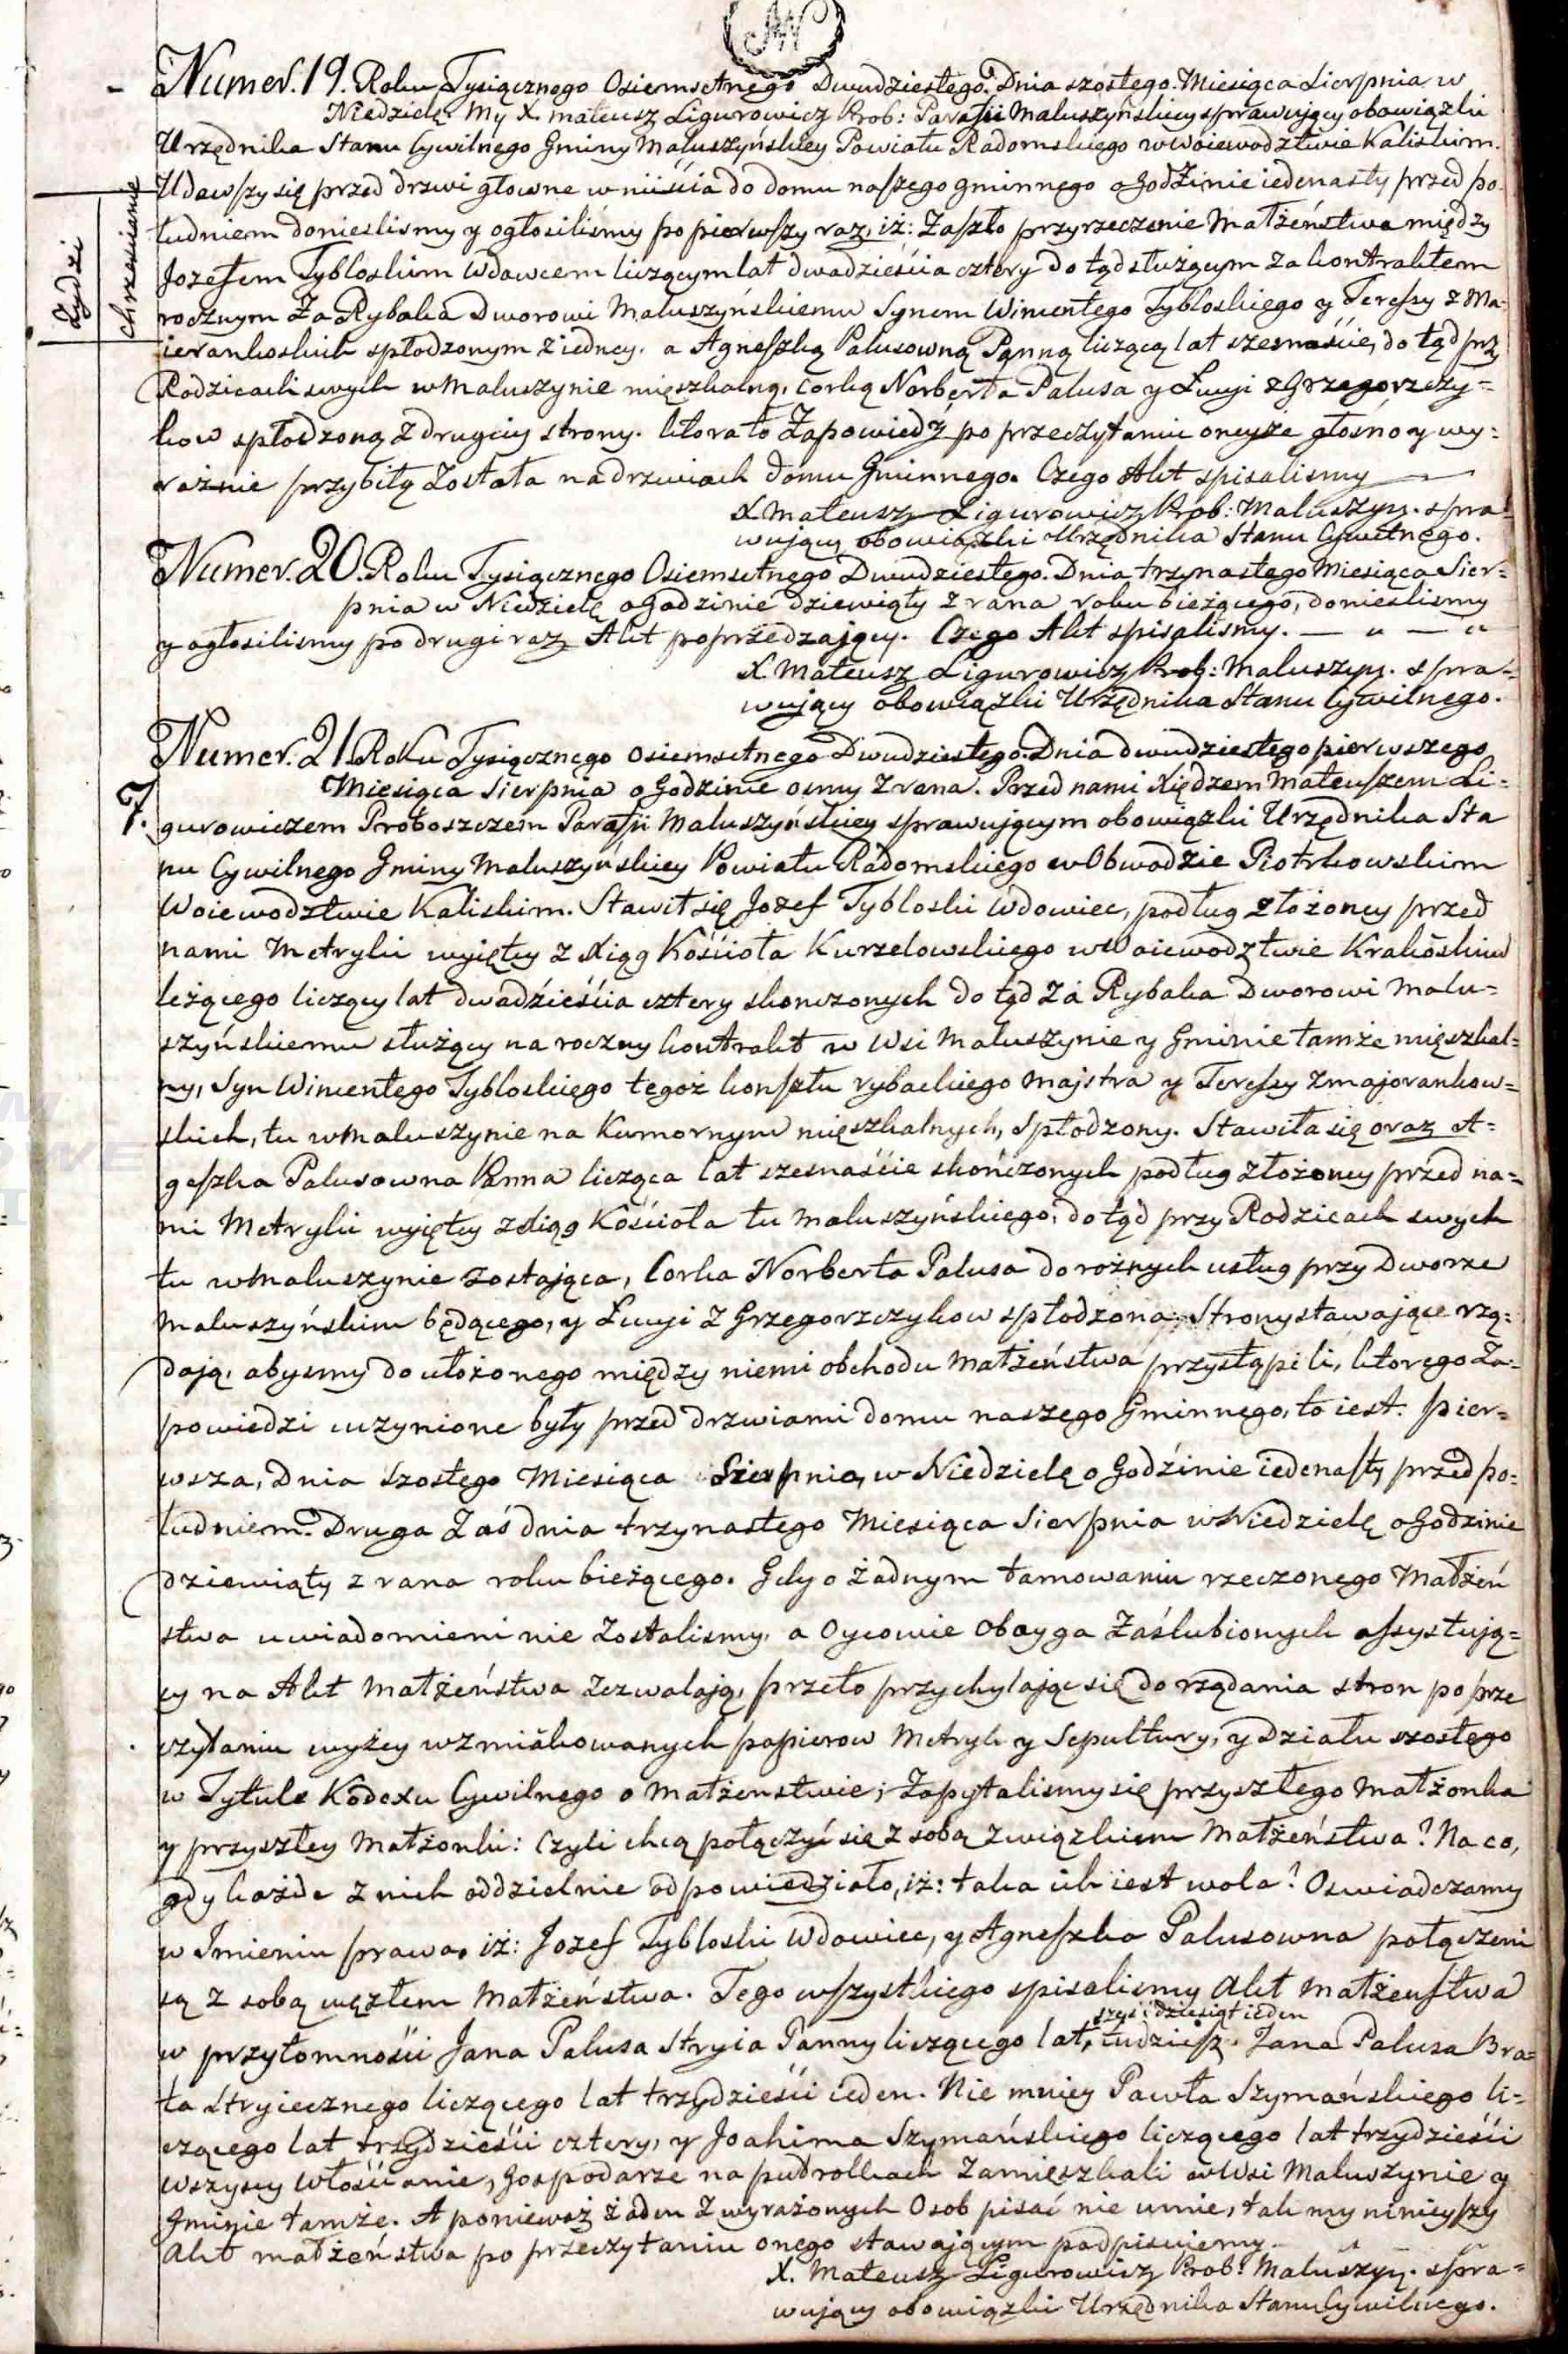 Numer. 19. Roku Tysiącznego Osiemsetnego Dwudziestego. Dnia szostego. Miesiąca Sierpnia w
Niedzielę. My X. Mateusz Ligurowicz Prob: Parafii Maluszyńskiey sprawuiący obowiązki
Urzędnika Stanu Cywilnego Gminy Maluszyńskiey Powiatu Radomskiego w Woiewodztwie Kaliskim.
Udawszy się przed drzwi głowne wniiścia do domu naszego gminnego o godzinie iedenasty przed po-
łudniem donieslismy y ogłosiliśmy po pierwszy raz, iż: Zaszło przyrzeczenie Małżeństwa między
Jozefem Tybloskim Wdowcem liczącym lat dwadzieścia cztery do tąd służącym za kontraktem
rocznym Za Rybaka Dworowi Maluszyńskiemu Synem Wincentego Tybloskiego y Teressy z Ma-
ierankoskich spłodzonym z iedney. a Agneszką Palusowną Panną liczącą lat szesnaście, do tąd prz
Rodzicach swych w Maluszynie mięszkalną, corką Norberta Palusa y Łucyi z Grzegorzczy=
kow spłodzoną z drugiey strony. ktora to Zapowiedź po przeczytaniu oneyże głośno y wy=
raźnie przybitą Została na drzwiach domu Gminnego. Czego Akt spisalismy
X Mateusz Ligurowicz Prob: Maluszyn. spra-
wujący obowiązki Urzędnika Stanu Cywilnego.
Numer. 20. Roku Tysiącznego Osiemsetnego Dwudziestego. Dnia trzynastego Miesiąca Sier=
pnia w Niedzielę o godzinie dziewiąty z rana roku bieżącego, donieslismy
y ogłosilismy po drugi raz Akt poprzedzający. Czego Akt spisalismy. — " — "
X. Mateusz Ligurowicz Prob: Maluszyn. spra-
wujący obowiązki Urzędnika Stanu Cywilnego.
Numer. 21. Roku Tysiącznego Osiemsetnego Dwudziestego. Dnia dwudziestego pierwszego
7. Miesiąca Sierpnia o Godzinie osmy z rana. Przed nami Xiędzem Mateuszem Li-
gurowiczem Proboszczem Parafii Maluszyńskiey sprawującym obowiązki Urzędnika Sta
nu Cywilnego Gminy Maluszyńskiey Powiatu Radomskiego w Obwodzie Piotrkowskim
Woiewodztwie Kaliskim. Stawił się Jozef Tybloski Wdowiec, podług złożoney przed
nami Metryki wyięty z Xiąg Kościoła Kurzelowskiego w Woiewodztwie Krakoskim
leżącego liczący lat dwadzieścia cztery skonczonych do tąd za Rybaka Dworowi Malu=
szyńskiemu służący na roczny kontrakt w Wsi Maluszynie y Gminie tamże mięszkal=
ny, Syn Wincentego Tybloskiego tegoż konsztu rybackiego majstra y Teressy z majorankow=
skich, tu w Maluszynie na Kumornym mięszkalnych, Spłodzony. Stawiła się oraz A=
geszka Palusowna Panna licząca lat szesnaście skończonych podług złożoney przed na=
mi Metryki wyięty z Xiąg Kościoła tu Maluszyńskiego, do tąd przy Rodzicach swych
tu w Maluszynie zostająca, Corka Norberta Palusa do rożnych usług przy Dworze
Maluszyńskim będącego, y Łucyi z Grzegorzczykow spłodzona. Strony stawające rzą=
dają, abysmy do ułożonego między niemi obchodu Małżeństwa przystąpili, ktorego Za=
powiedzi uczynione były przed drzwiami domu naszego Gminnego, to iest. pier=
wsza, Dnia Szostego Miesiąca Sierpnia, w Niedzielę o Godzinie iedenasty przed po=
łudniem. Druga Zaś dnia trzynastego Miesiąca Sierpnia w Niedzielę o Godzinie
dziewiąty z rana roku bieżącego. Gdy o żadnym tamowaniu rzeczonego Małżeń
stwa uwiadomieni nie zostalismy, a Oycowie Obayga Zaślubionych assystują=
cy na Akt Małżeństwa Zezwalają, przeto przychylając się do rządania stron po prze
czytaniu wyżey wzmiankowanych papierow Metryk y Sepultury, y działu szostego
w Tytule Kodexu Cywilnego o Małżenstwie; Zapytalismy się przyszłego Małżonka
y przyszłey Małżonki: Czyli chcą połączyć się z sobą związkiem Małżeństwa? Na co,
gdy każde z nich oddzielnie odpowiedziało, iż: taka ich iest wola! Oswiadczamy
w Imieniu prawa, iż: Jozef Tybloski Wdowiec, y Agneszka Palusowna połączeni
są z sobą węzłem Małżeństwa. Tego wszystkiego spisalismy Akt Małżeństwa
szesćdziesiąt ieden
w przytomności Jana Palusa Stryia Panny liczącego lat, tudziesz. Jana Palusa Bra=
ta Stryiecznego liczącego lat trzydzieści ieden. Nie mniey Pawła Szymańskiego li=
czącego lat trzydzieści cztery, y Joahima Szymańskiego liczącego lat trzydzieści
Wszyscy Włościanie, Gospodarze na pułrolkach Zamięszkali w Wsi Maluszynie y
Gminie tamże. A ponieważ żaden z wyrażonych Osob pisać nie umie, tak my ninieyszy
Akt małżeństwa po przeczytaniu onego stawającym podpisuiemy.
X. Mateusz Ligurowicz Prob: Maluszyn. spra=
wujący obowiązki Urzędnika Stanu Cywilnego.
Żydzi
chrześcianie